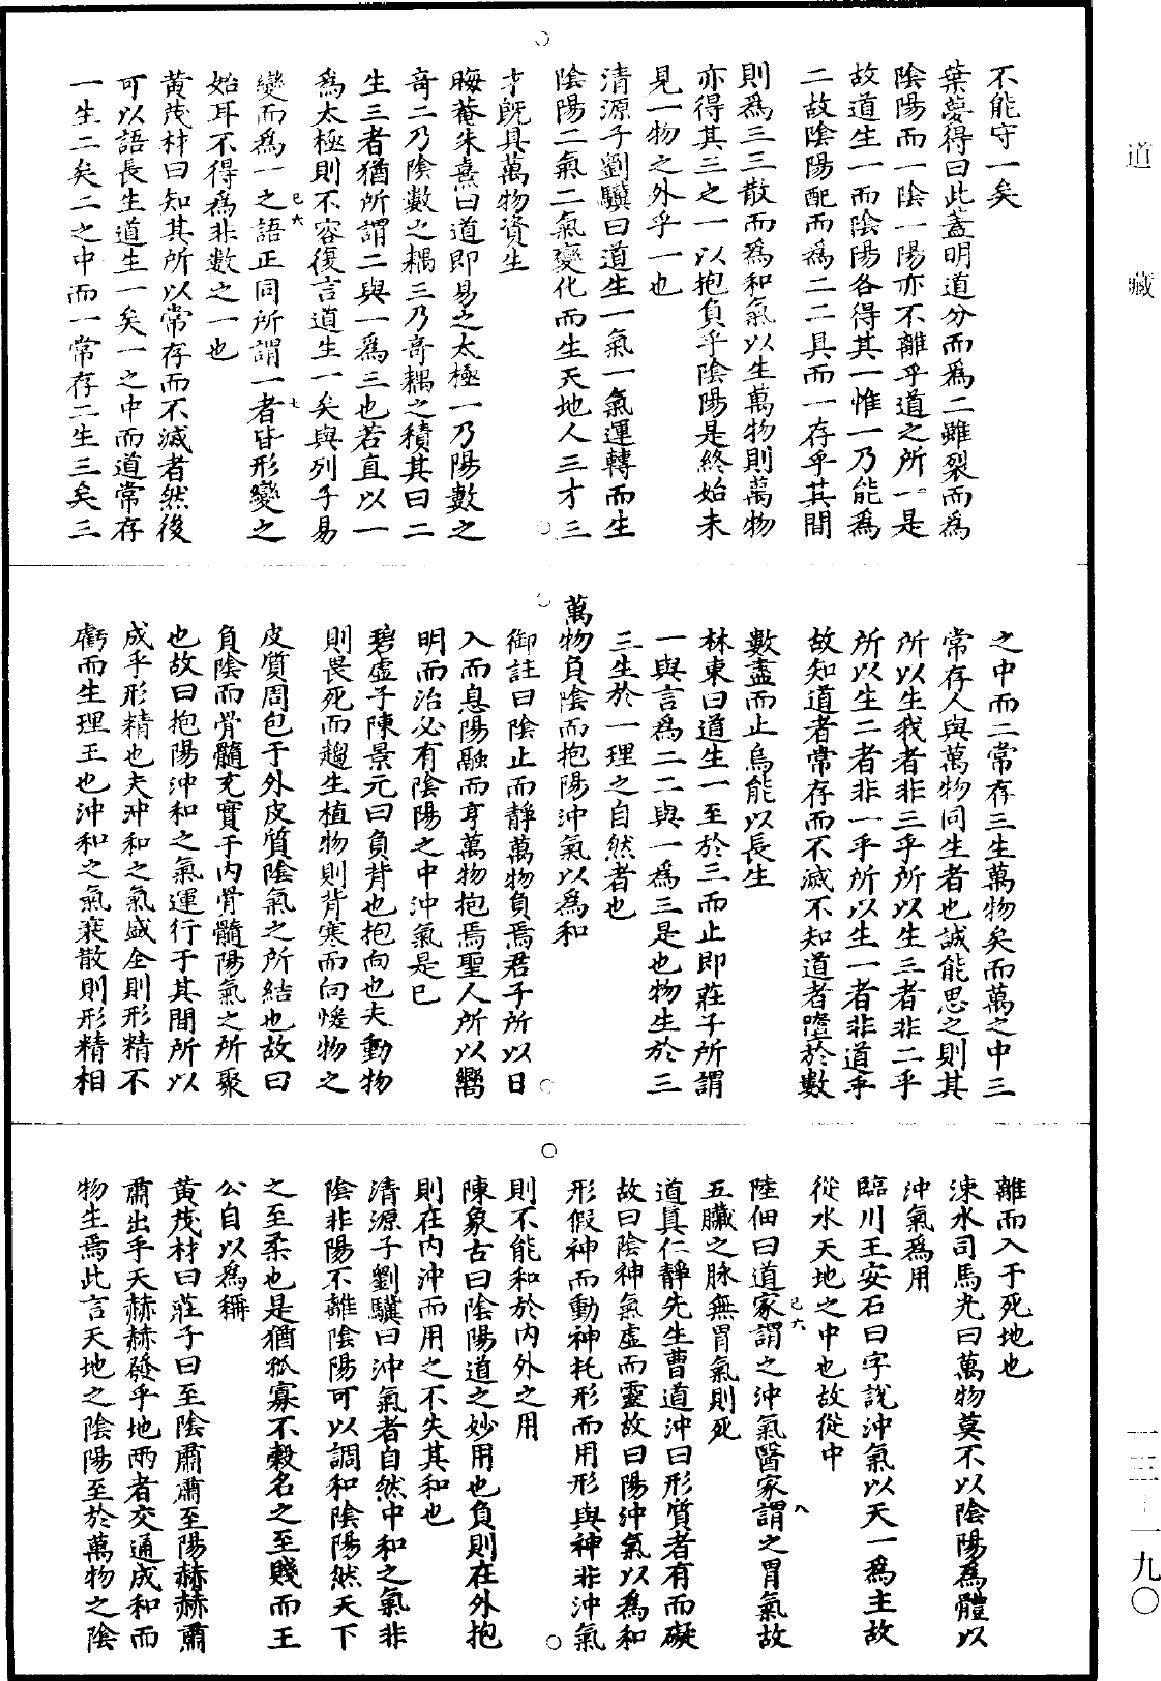 道藏
不能守一矣
葉夢得曰此蓋明道分而爲二雖裂而爲
陰陽而一陰一陽亦不離乎道之所一是
故道生一而陰陽各得其一惟一乃能爲
二故陰陽配而爲二二具而一存乎其間
則爲三三散而爲和氣以生萬物則萬物
亦得其三之一以抱負乎陰陽是終始未
見一物之外乎一也
清源子劉驥曰道生一氣一氣運轉而生
陰陽二氣二氣變化而生天地人三才三
才既具萬物資生
晦菴朱熹曰道即易之太極一乃陽數之
奇二乃陰數之耦三乃奇耦之積其曰二
生三者猶所謂二與一爲三也若直以一
爲太極則不容復言道生一矣與列子易
變而爲一之語正同所謂一者皆形變之
始耳不得爲非數之一也
黃茂材曰知其所以常存而不滅者然後
可以語長生道生一矣一之中而道常存
一生二矣二之中而一常存二生三矣三
之中而二常存三生萬物矣而萬之中三
常存人與萬物同生者也誠能思之則其
所以生我者非三乎所以生三者非二乎
所以生二者非一乎所以生一者非道乎
故知道者常存而不滅不知道者墮於數
數盡而止烏能以長生
林東曰道生一至於三而止即莊子所謂
一與言爲二二與一爲三是也物生於三
三生於一理之自然者也
萬物負陰而抱陽沖氣以爲和
御註曰陰止而靜萬物負焉君子所以日
入而息陽融而亨萬物抱焉聖人所以嚮
明而治必有陰陽之中沖氣是已
碧虛子陳景元曰負背也抱向也夫動物
則畏死而趨生植物則背寒而向煖物之
皮質周包于外皮質陰氣之所結也故曰
負陰而骨髓充實于内骨髓陽氣之所聚
也故曰抱陽沖和之氣運行于其間所以
成乎形精也夫沖和之氣盛全則形精不
虧而生理王也沖和之氣衰散則形精相
離而入于死地也
涑水司馬光曰萬物莫不以陰陽爲體以
沖氣爲用
臨川王安石曰字說沖氣以天一爲主故
從水天地之中也故從中
陸佃曰道家謂之沖氣醫家謂之胃氣故
五臟之脉無胃氣則死
道真仁靜先生曹道沖曰形質者有而礙
故曰陰神氣虛而靈故曰陽沖氣以爲和
形假神而動神托形而用形與神非沖氣
則不能和於内外之用
陳象古曰陰陽道之妙用也負則在外抱
則在内沖而用之不失其和也
清源子劉驥曰沖氣者自然中和之氣非
陰非陽不離陰陽可以調和陰陽然天下
之至柔也是猶孤寡不穀名之至賤而王
公自以爲稱
黃茂材曰莊子曰至陰肅肅至陽赫赫肅
肅出乎天赫赫發乎地兩者交通成和而
物生焉此言天地之陰陽至於萬物之陰
一三—一九〇